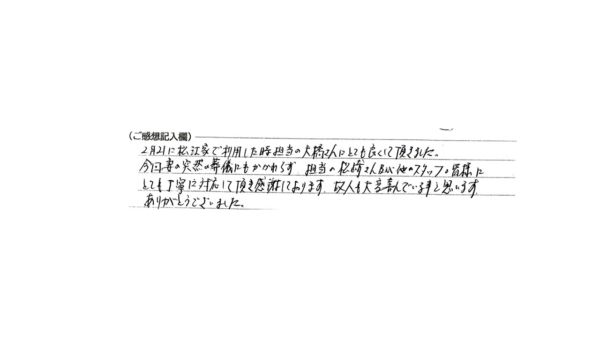 (ご感想記入欄)
2月21に松江家で利用した時担当の大橋さんにとても良くして頂きました。
今回妻の突然の葬儀にもかかわらず、担当の松崎さん及び他のスタッフの皆様に
とても丁寧に対応して頂き感謝しております。故人も大変喜んでいる事と思います。
ありがとうございました。